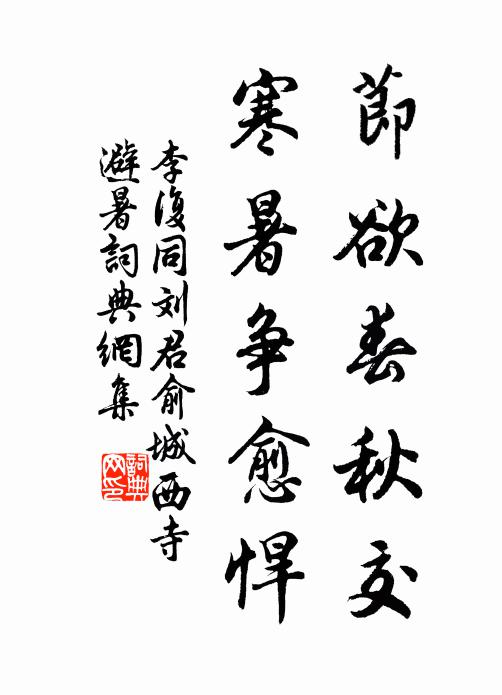 節欲春秋交
寒暑争愈悍
李復同刘君俞城西寺
避暑詞典網集
詞典网印